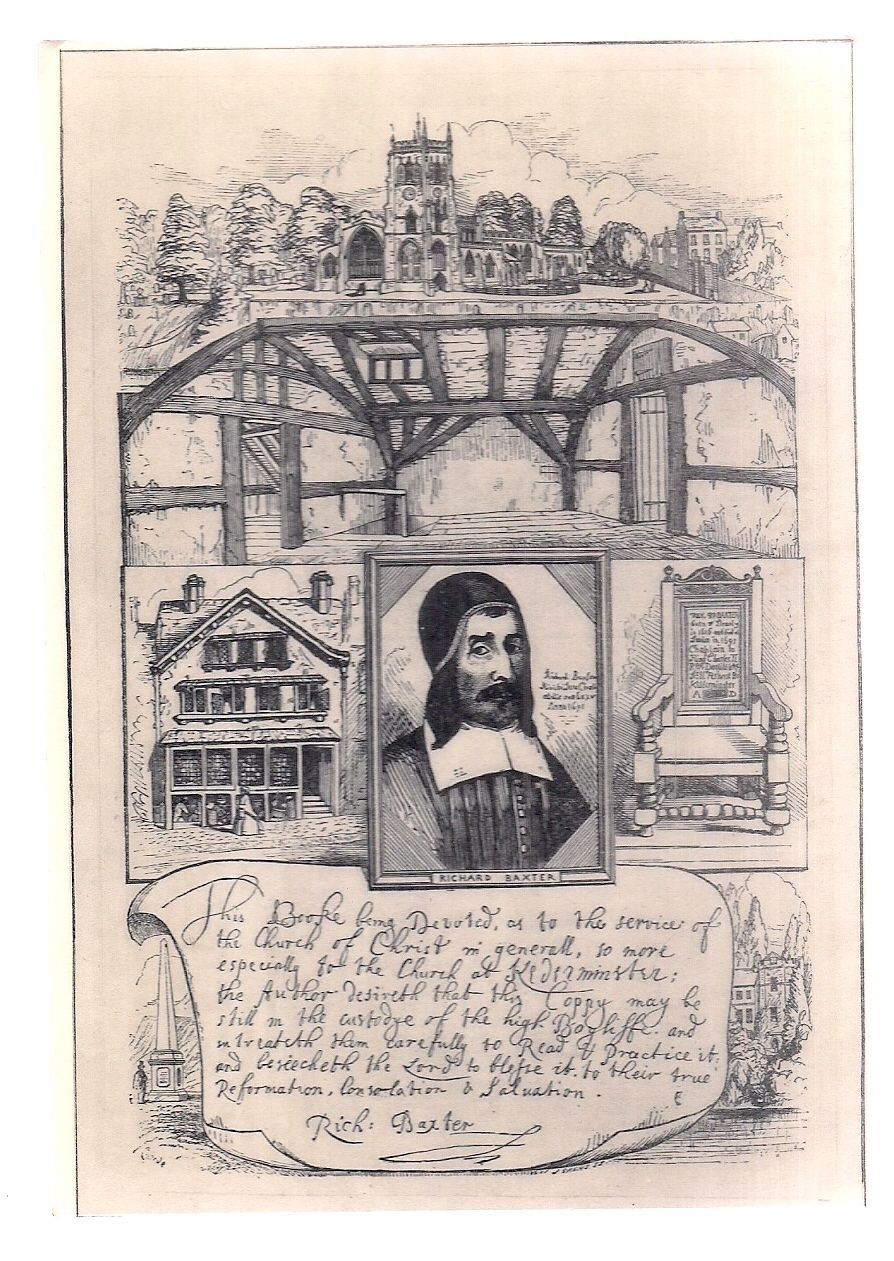 Richard Baxter
Anno 1691
Chaplain to
King Charles II
A D
RICHARD BAXTER
This Booke being Devoted, as to the service of
the Church of Christ in generall, so more
especially to the Church at Kederminster;
the Author desireth that this Coppy may be
still in the custodye of the high Bayliffe. and
intreateth them carefully to Read & Practice it;
and beseecheth the Lord to blesse it to their true
Reformation, Consolation & Salvation.
Rich: Baxter